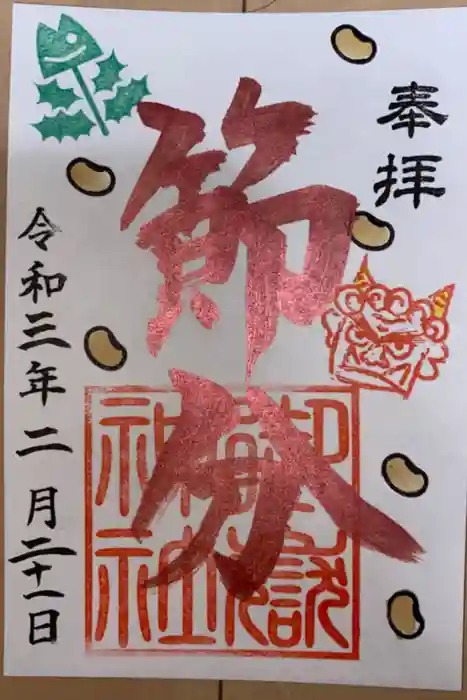 奉拝
節分
御嶽
神社
令和三年二月二十一日